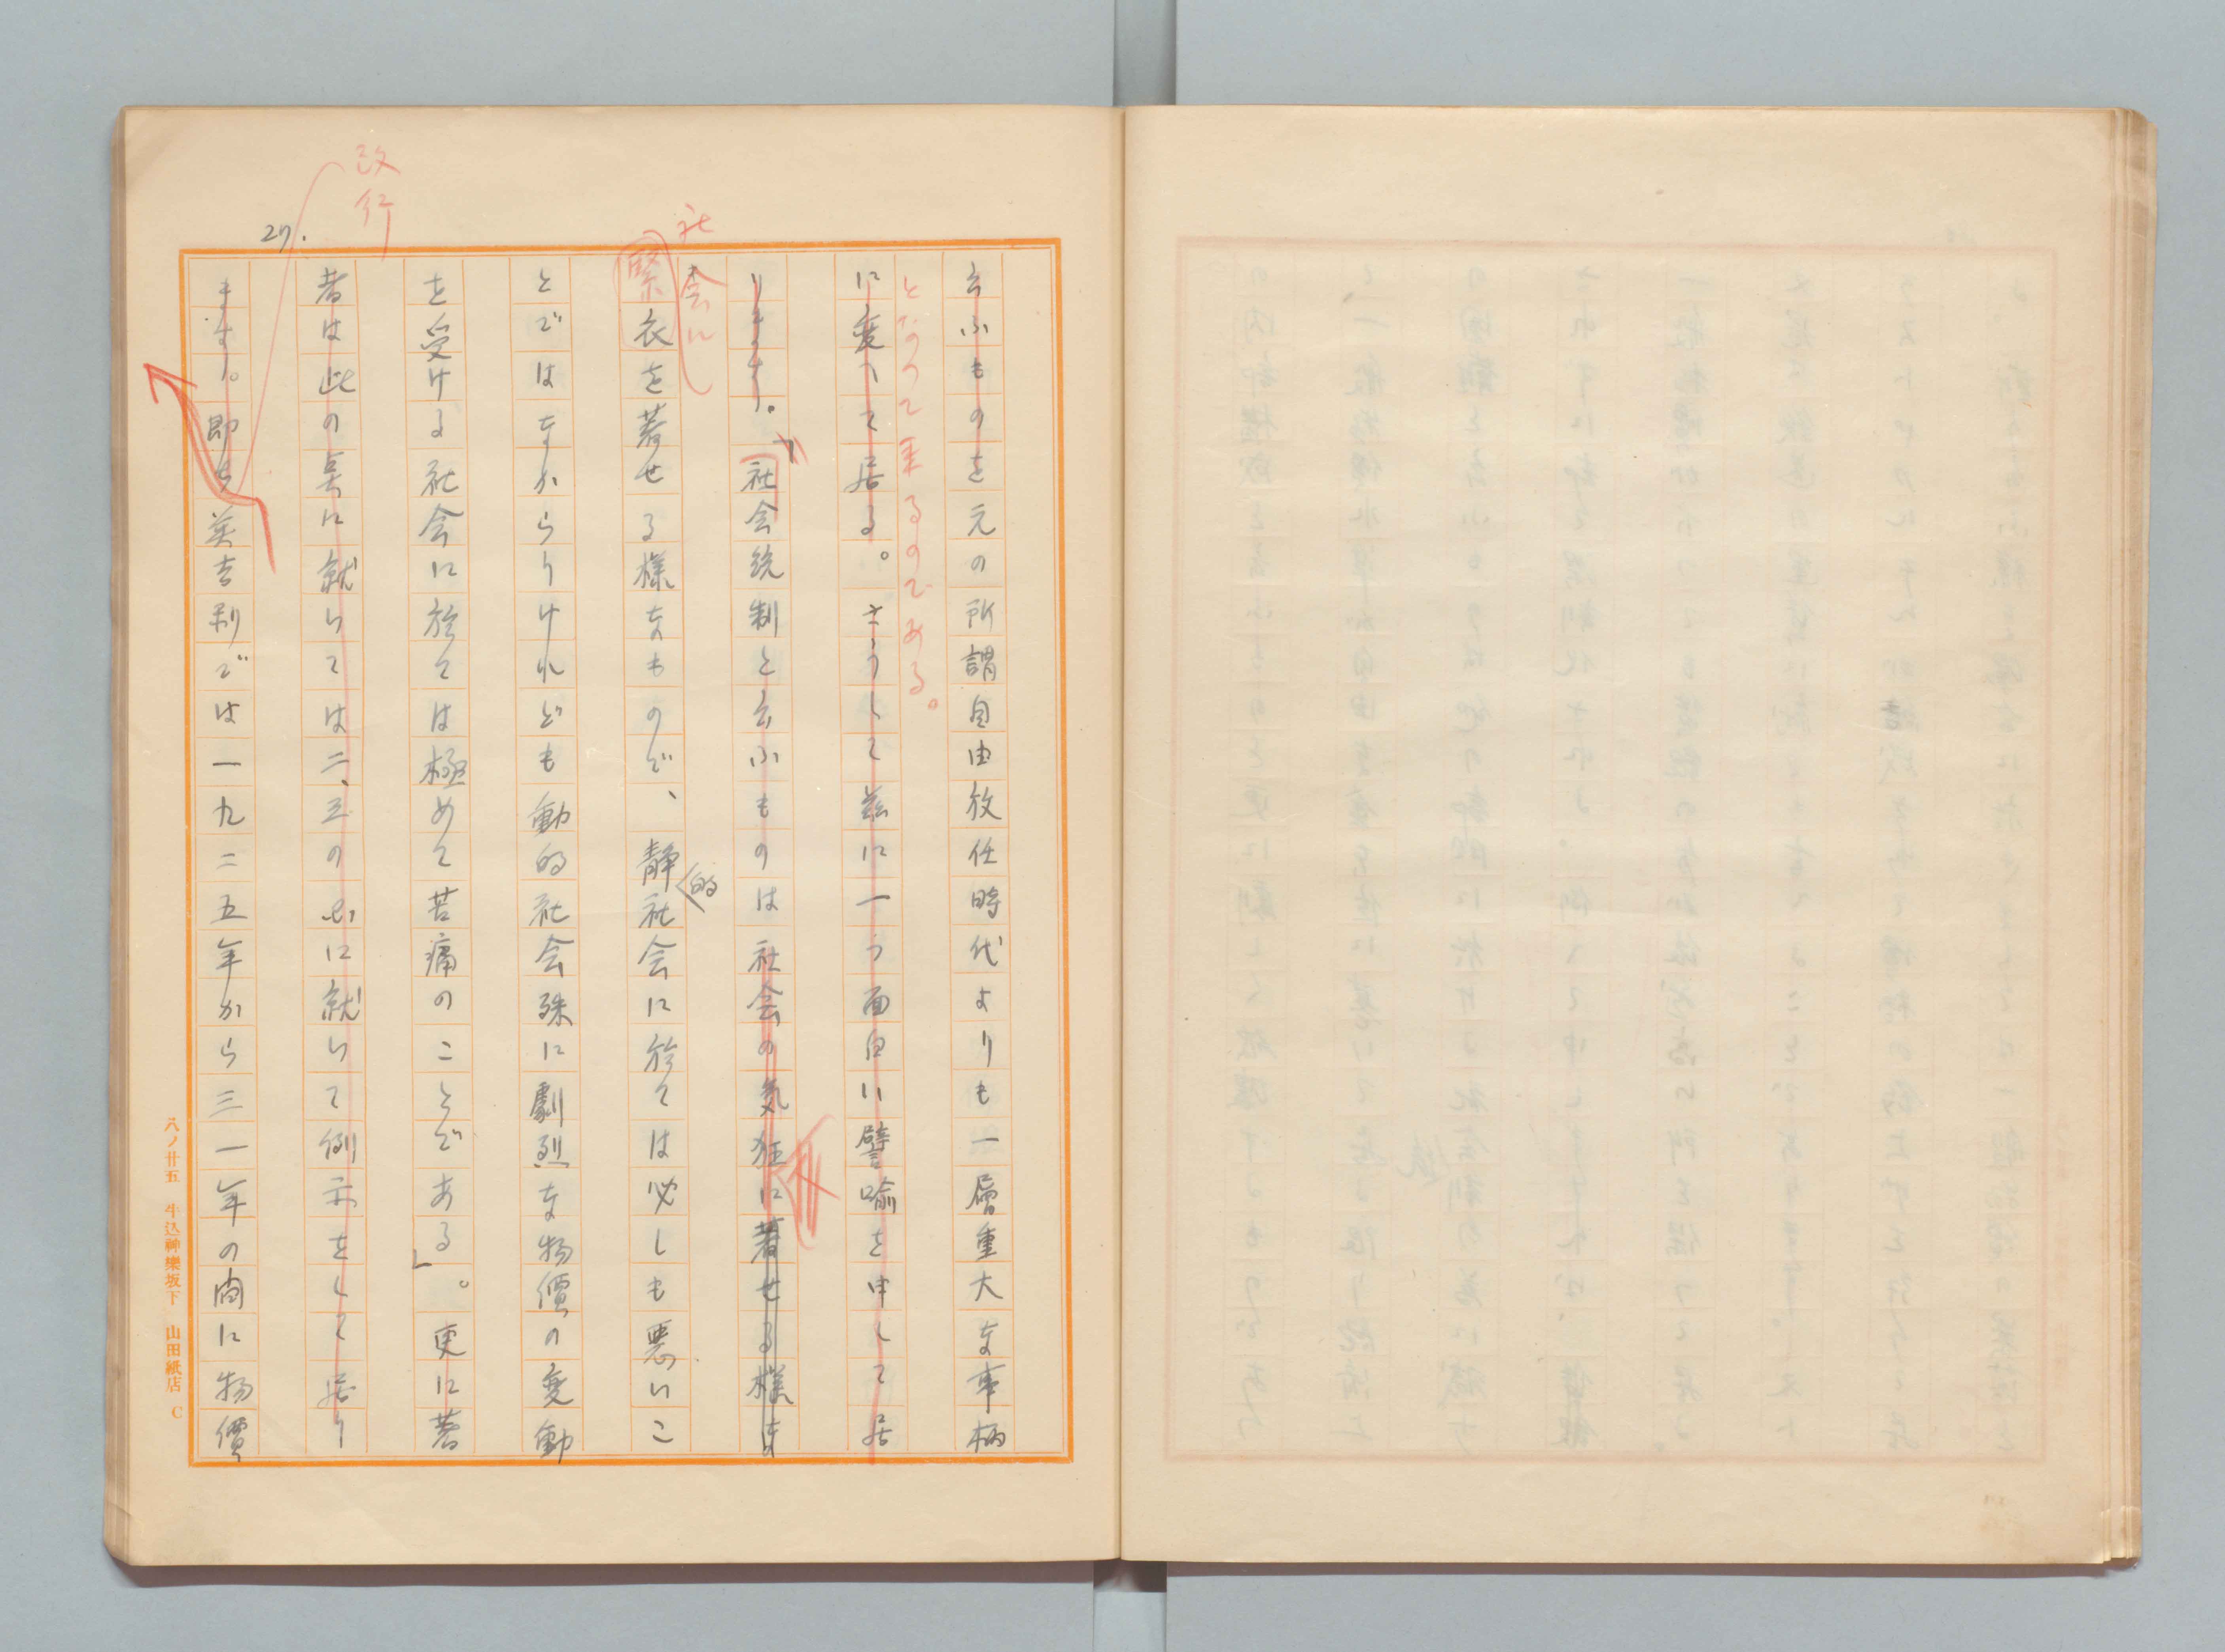 27.
改行
云ふものを元の所謂自由放任時代よりも一層重大な事柄
となつて来るのである。
に変へて居る。さうして茲に一つ面白い譬喩を申して居
ります。「社会統制と云ふものは社会の気狂に着せる様な
社会に
緊衣を着せる様なもので、静社会に於ては必しも悪いこ
的
とではなからうけれども動的社会殊に劇烈な物價の変動
を受ける社会に於ては極めて苦痛のことである」。更に著
者は此の点に就いては二、三の
に就いて例示をして居り
ます。即ち英吉利では一九二五年から三一年の間に物價
八ノ廿五 牛込神樂坂下 山田紙店 C